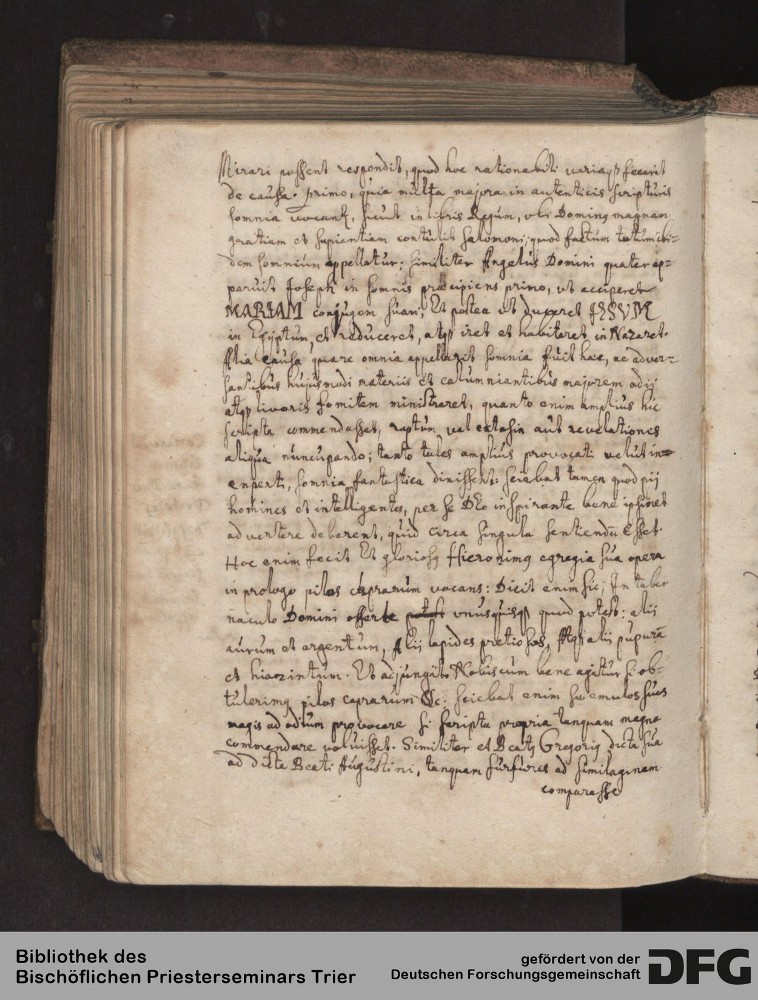 Mirari possent respondit, quod hoc rationabili utiqꝫ fecerit
de causa. primo, quia multa majora in autenticis scripturis
somnia vocant, sicut in libris Regum, vbi Dominꝰ magnam
gratiam et sapientiam contulit Salomoni; quod factum totum ibi-
dem somnium appellatur; similiter Angelus Domini quater ap-
paruit Joseph in somnis præcipiens primo, ut acciperet
MARIAM conjugem suam; Et postea ut duceret JESUM
in Egÿptum, et reduceret, atqꝫ iret et habitaret in Nazaret.
Alia causa, quare omnia appellavit somnia fuit haec, ne adver-
santibus hujusmodi materiis et calumniantibus majorem odij
atqꝫ livoris fomitem ministraret, quanto enim amplius hic
scripta commendasset, raptum vel extasin aut revelationes
aliqua nuncupando; tanto tales amplius provocati velut in-
experti, somnia fantastica dixissent. sciebat tamen quod pij
homines et intelligentes, per se DEo inspirante bene ipsimet
advertere deberent, quid circa singula sentiendū esset.
Hoc enim fecit Et gloriosꝰ Hieronimꝰ egregia sua opera
in prologo pilos caprarum vocans: Dicit enim sic; In taber
naculo Domini offerte potest vnusquisqꝫ quod potest: alij
aurum et argentum, Alij lapides pretiosos, Atqꝫ alij pupurā
et hiacintum. Et adjungit. Nobiscum bene agitur si ob-
tulerimꝰ pilos caprarum &c: sciebat enim se emulos suos
magis ad odium provocare si scripta propria tanquam magna
commendare voluisset. Similiter et Beatꝰ Gregoriꝰ dicta sua
ad dicta Beati Augustini, tanquam furfures ad similaginem
comparasse
Bibliothek des
Bischöflichen Priesterseminars Trier
gefördert von der
Deutschen Forschungsgemeinschaft
DFG